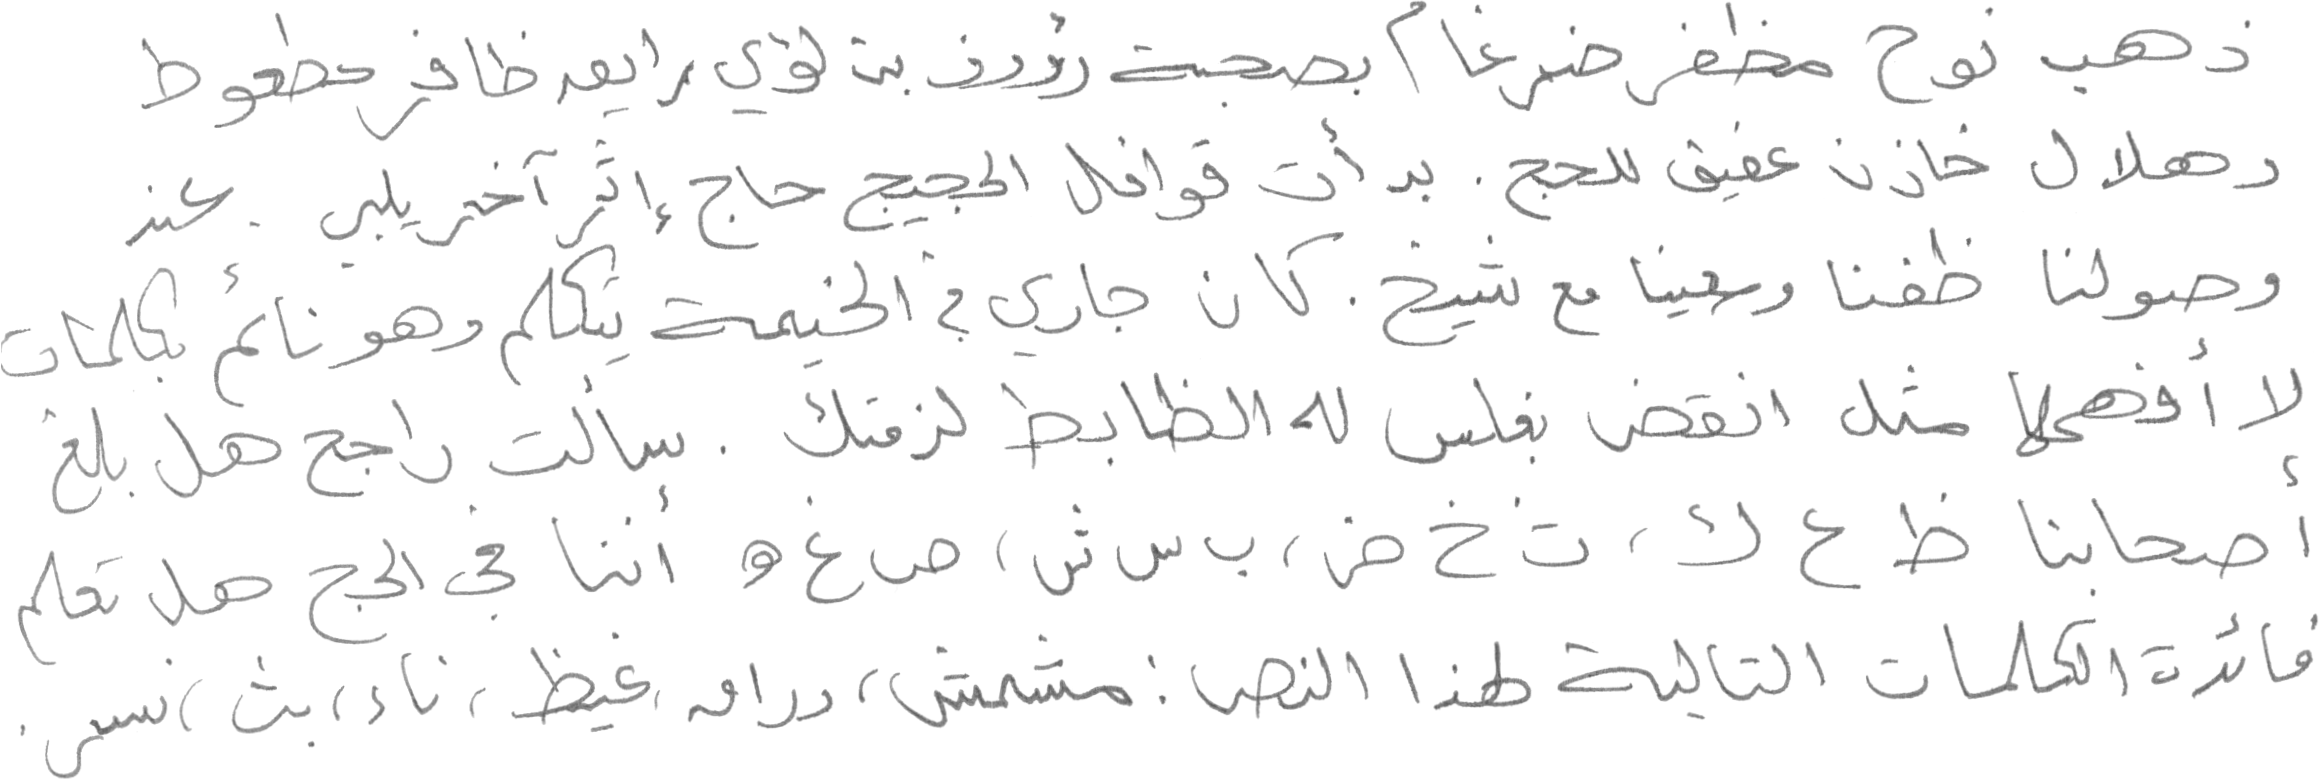 ذهب نوح مظفر ضرغام بصحبة رؤوف بن لؤي رايق ظافر حطعوط
وهلال خازن عفيق للحج . بدأت قوافل الحجيج حاج إثر آخر يلبي . عند
وصولنا طفنا وسعينا مع شيخ . كان جاري في الخيمة يتكلم وهو نائم بكلمات
لا أفهمها مثل انقض بغلس له الظابط لزقتك . سألت راجح هل بالغ
أصحابنا ظ ع ك ، ت خ ض ، ب س ش ، ص غ ه أننا في الحج هل تعلم
فائدة الكلمات التالية لهذا النص : مشمش ، دراق ، غيظ ، ناء ، بث ، نسس .